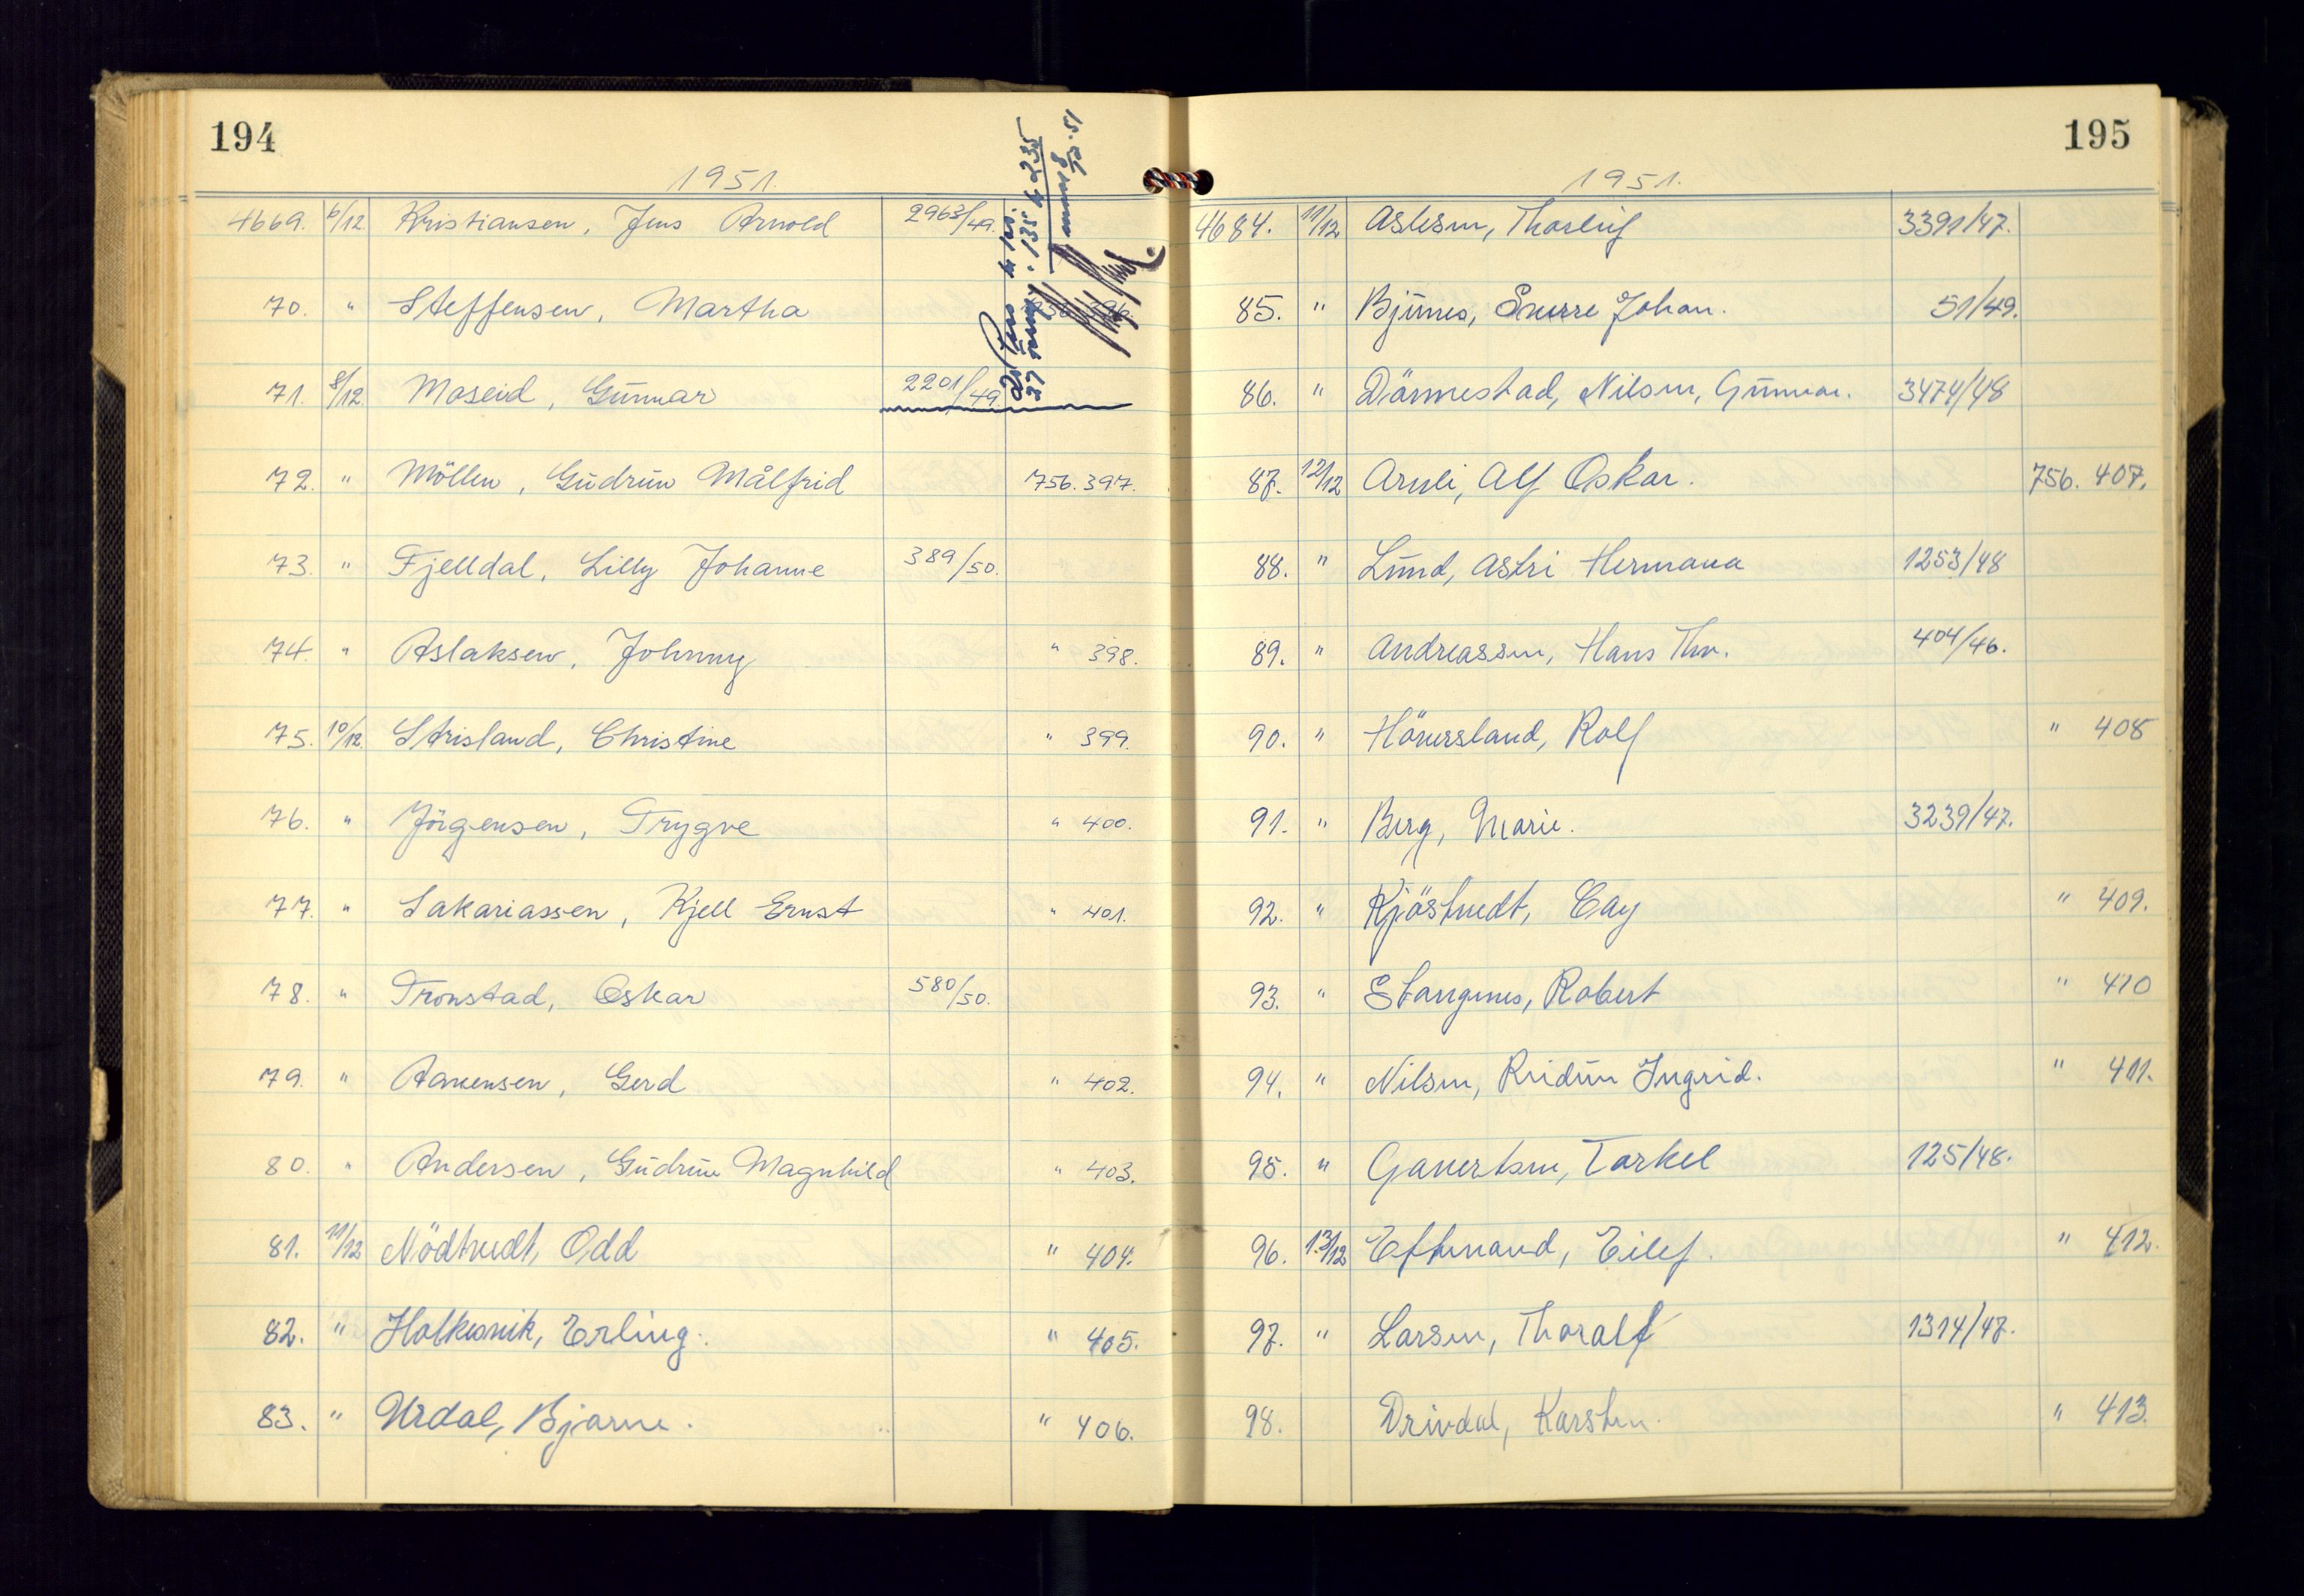 194
1951.
4669. 6/12 Kristiansen, Jens Arnold 2963/49.
70. " Steffensen, Martha
71. 8/12 Moseid, Gunnar 2201/49
72. " Möllen, Gudrun Målfrid 756.397.
73. " Fjelldal, Lilly Johanne 389/50.
74. " Aslaksen, Johnny " 398.
75. 10/12 Strisland, Christine " 399.
76. " Jörgensen, Trygve " 400.
77. " Sakariassen, Kjell Ernst " 401.
78. " Tronstad, Oskar 580/50.
79. " Aanensen, Gerd " 402.
80. " Andersen, Gudrun Magnhild " 403.
81. 11/12 Nödtvedt, Odd " 404.
82. " Holkesvik, Erling. " 405.
83. " Urdal, Bjarne. " 406.
195
1951.
4684. 11/12 Aslesen, Thorleif 3391/47.
85. " Bjünes, Sverre Johan. 51/49.
86. " Dånnestad, Nilsen, Gunnar. 3474/48
87. 12/12 Arnli, Alf Oskar. 756. 407.
88. " Lund, Astri Hermana 1253/48
89. " Andreassen, Hans Thv. 404/46.
90. " Höversland, Rolf " 408
91. " Berg, Marie. 3239/47.
92. " Kjöstvedt, Cay " 409.
93. " Stangnes, Robert " 410
94. " Nilsen, Reidun Ingrid. " 411.
95. " Gauertsen, Torkel 125/48.
96. 13/12 Eftevand, Eilef. " 412.
97. " Larsen, Thoralf 1314/47.
98. Drivdal, Karsten. " 413.